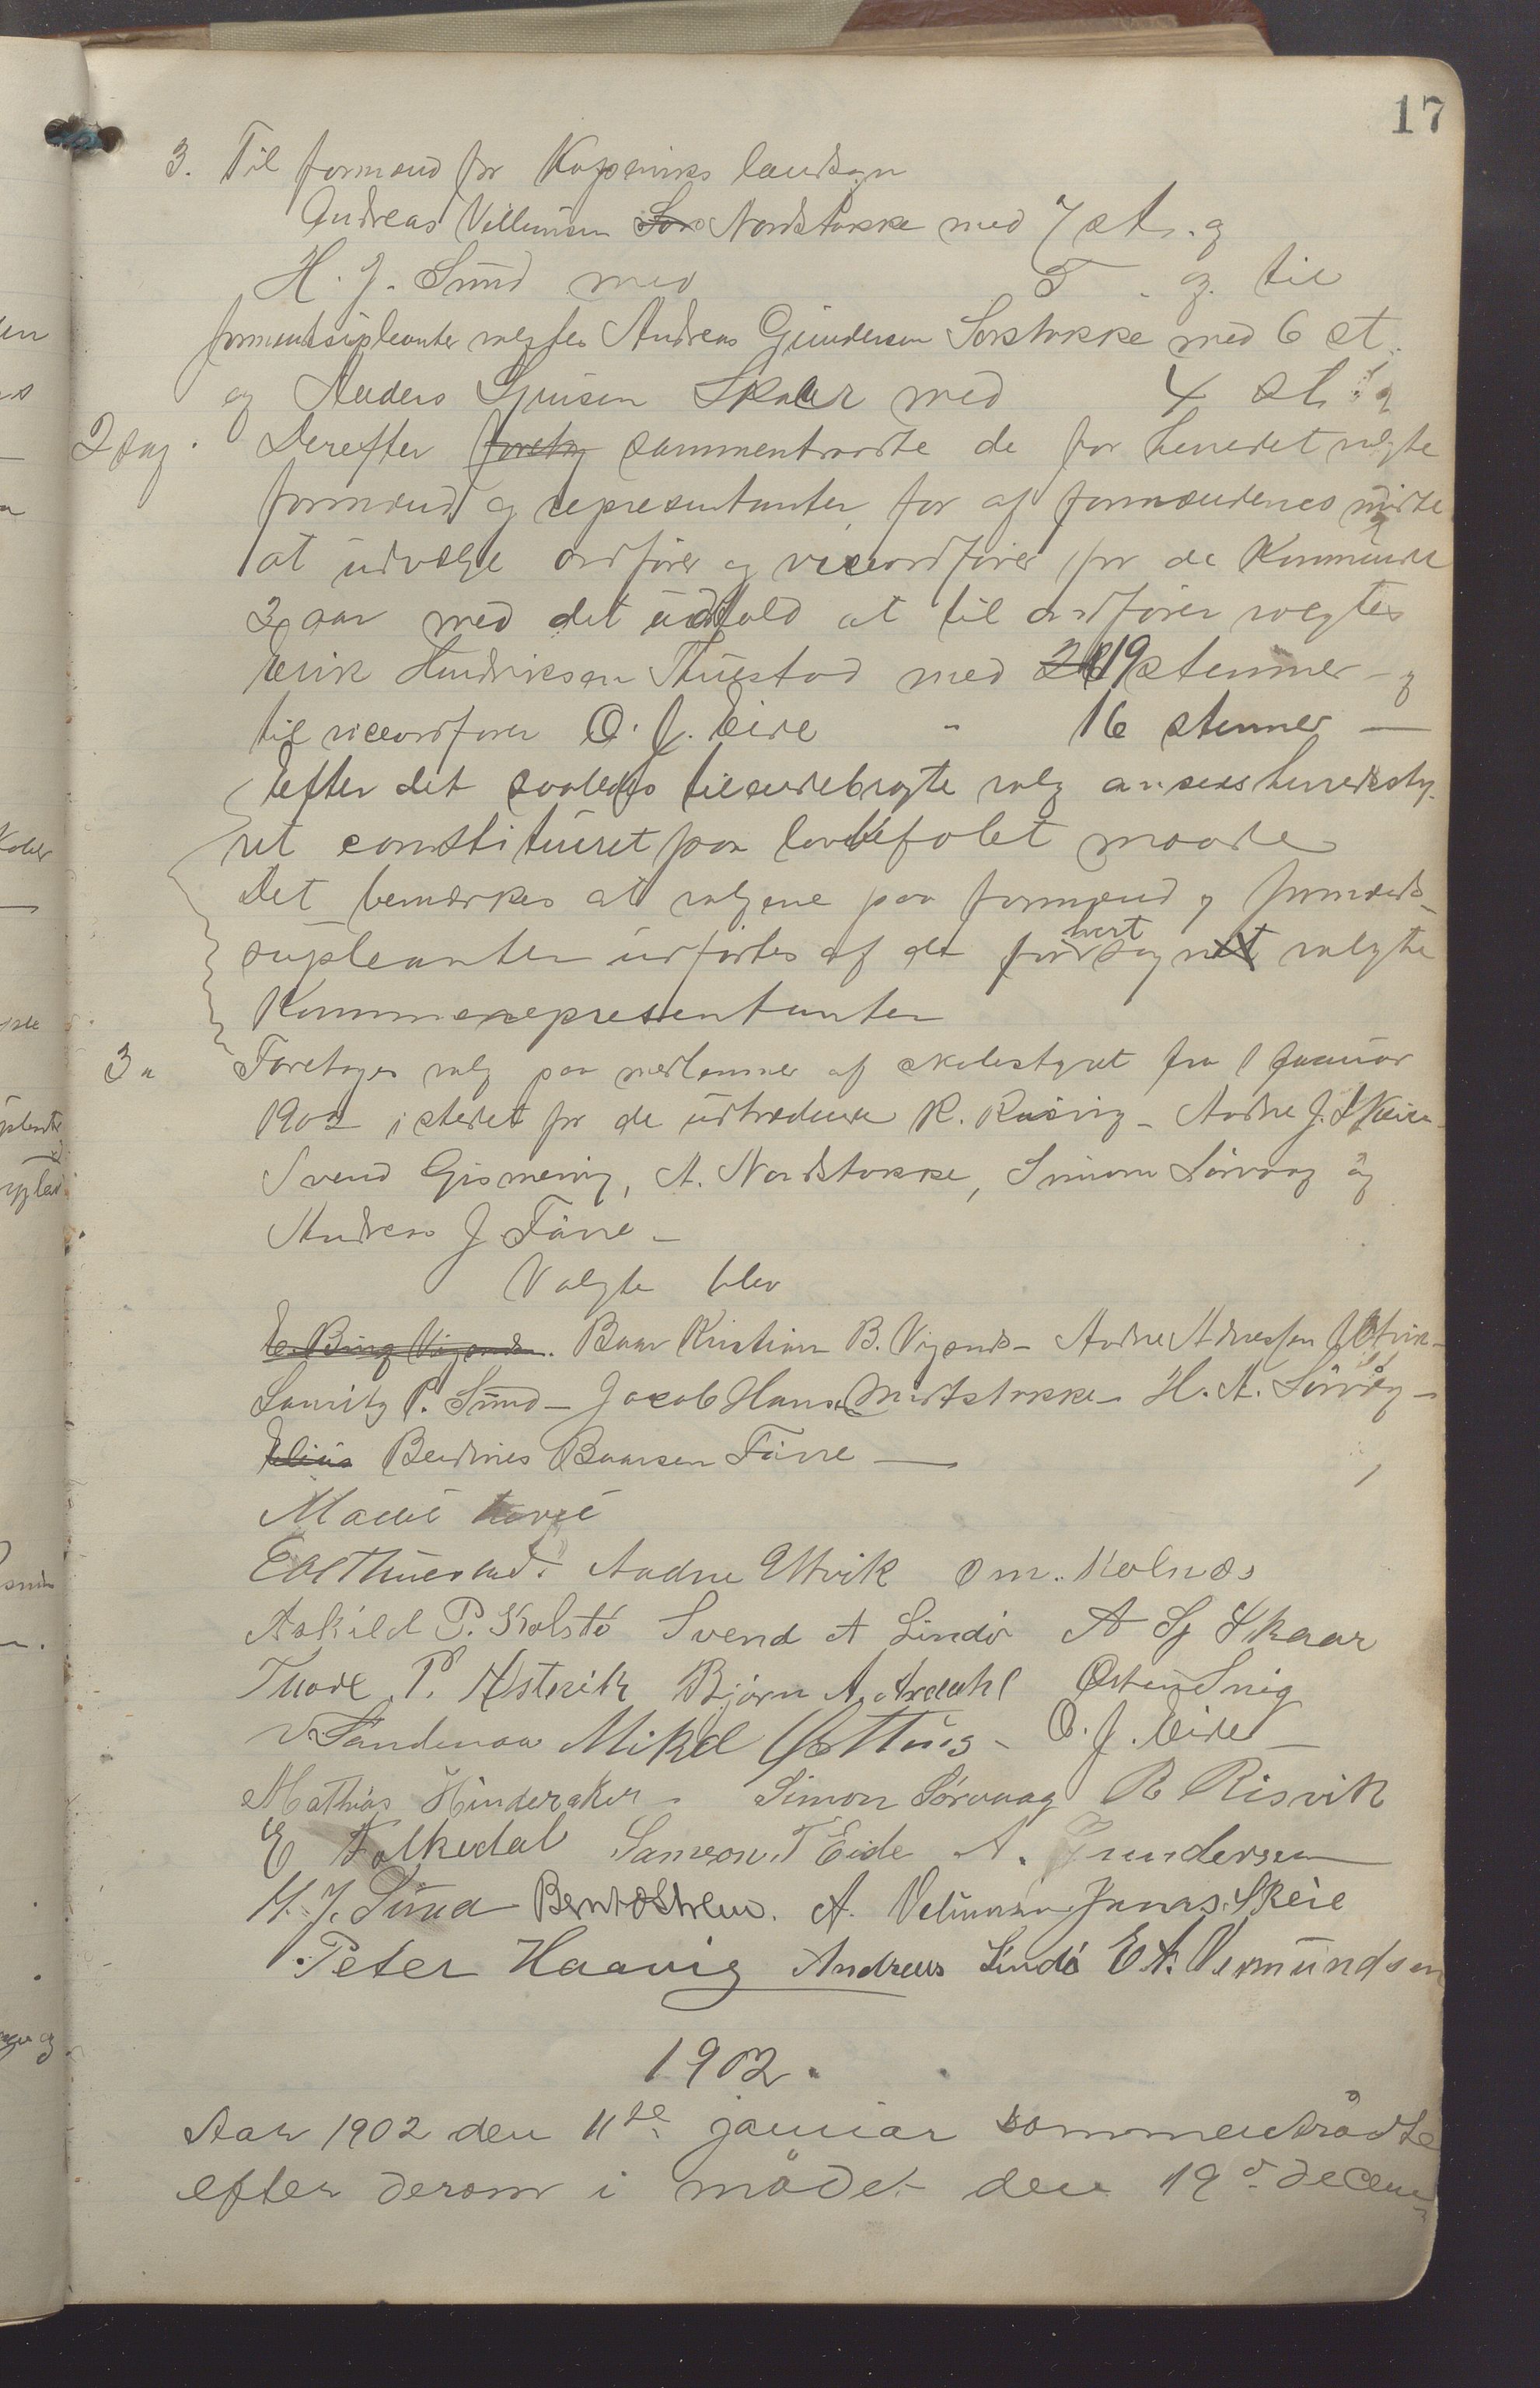 17
3. Til formænd for Kopervik landsogn
Andreas Villumsen Sør Nordstokke med 7 st. og
H. J. Sund med 5 - og til
formandsupleanter valgtes Andreas Gundersen Sørstokke med 6 st.
og Anders Sjursen Skaar med 4 st.
2 sag. Derefter foretog sammentraadte de for herredet valgte
formænd og representanter for af formændenes midte
at udvælge ordfører og viceordfører for de kommende
2 aar med det udfald at til ordfører valgtes
Erik Hendriksen Thuestad med 19 stemmer - og
til viceordfører O. J. Eide " 16 stemmer —
Efter det saaledes tilendebragte valg ansees herredssty-
ret constitueret paa lovbefalet maade
Det bemærkes at valgene paa formænd og formænds-
supleanter udførtes af de for hvert sogn valgte
Kommunerepresentanter
3 " Foretoges valg paa medlemmer af skolestyret fra 1 Januar
1902 istedet for de udtrædende R. Risvig - Aadne J. Skeie
Svend Gismervig, A. Nordstokke, Simon Sørvaag og
Andreas J. Færre -
Valgte blev
E. Bing Vigsnes. Baar Kristian B. Vigsnes - Aadne Adnesen Utvik -
Lauritz P. Sund - Jacob Hansen Midtstokke - H. A. Sørvåg -
Elias Berdines Baarsen Færre —
Mødet hævet
E H Thuestad. Aadne Utvik O M. Kolnæs
Askild P. Kolstø Svend A Lindø A Sj Skaar
Thore P. Østrik Bjørn A. Ardahl Østen Snig
V. Sandenaa Mikel Østhus - O. J. Eide -
Mathias Hinderaker - Simon Sørvaag R Risvik
E Falkedal Samson T Eide A. Gundersen
H. J. Sund Bernt Østhem. A. Velumsen Jonas. Skeie
Peter Haavig Andreas Lindø E A. Vermundsen
1902.
Aar 1902 den 11te januar sammentrådte
efter derom i mødet den 19d decem-